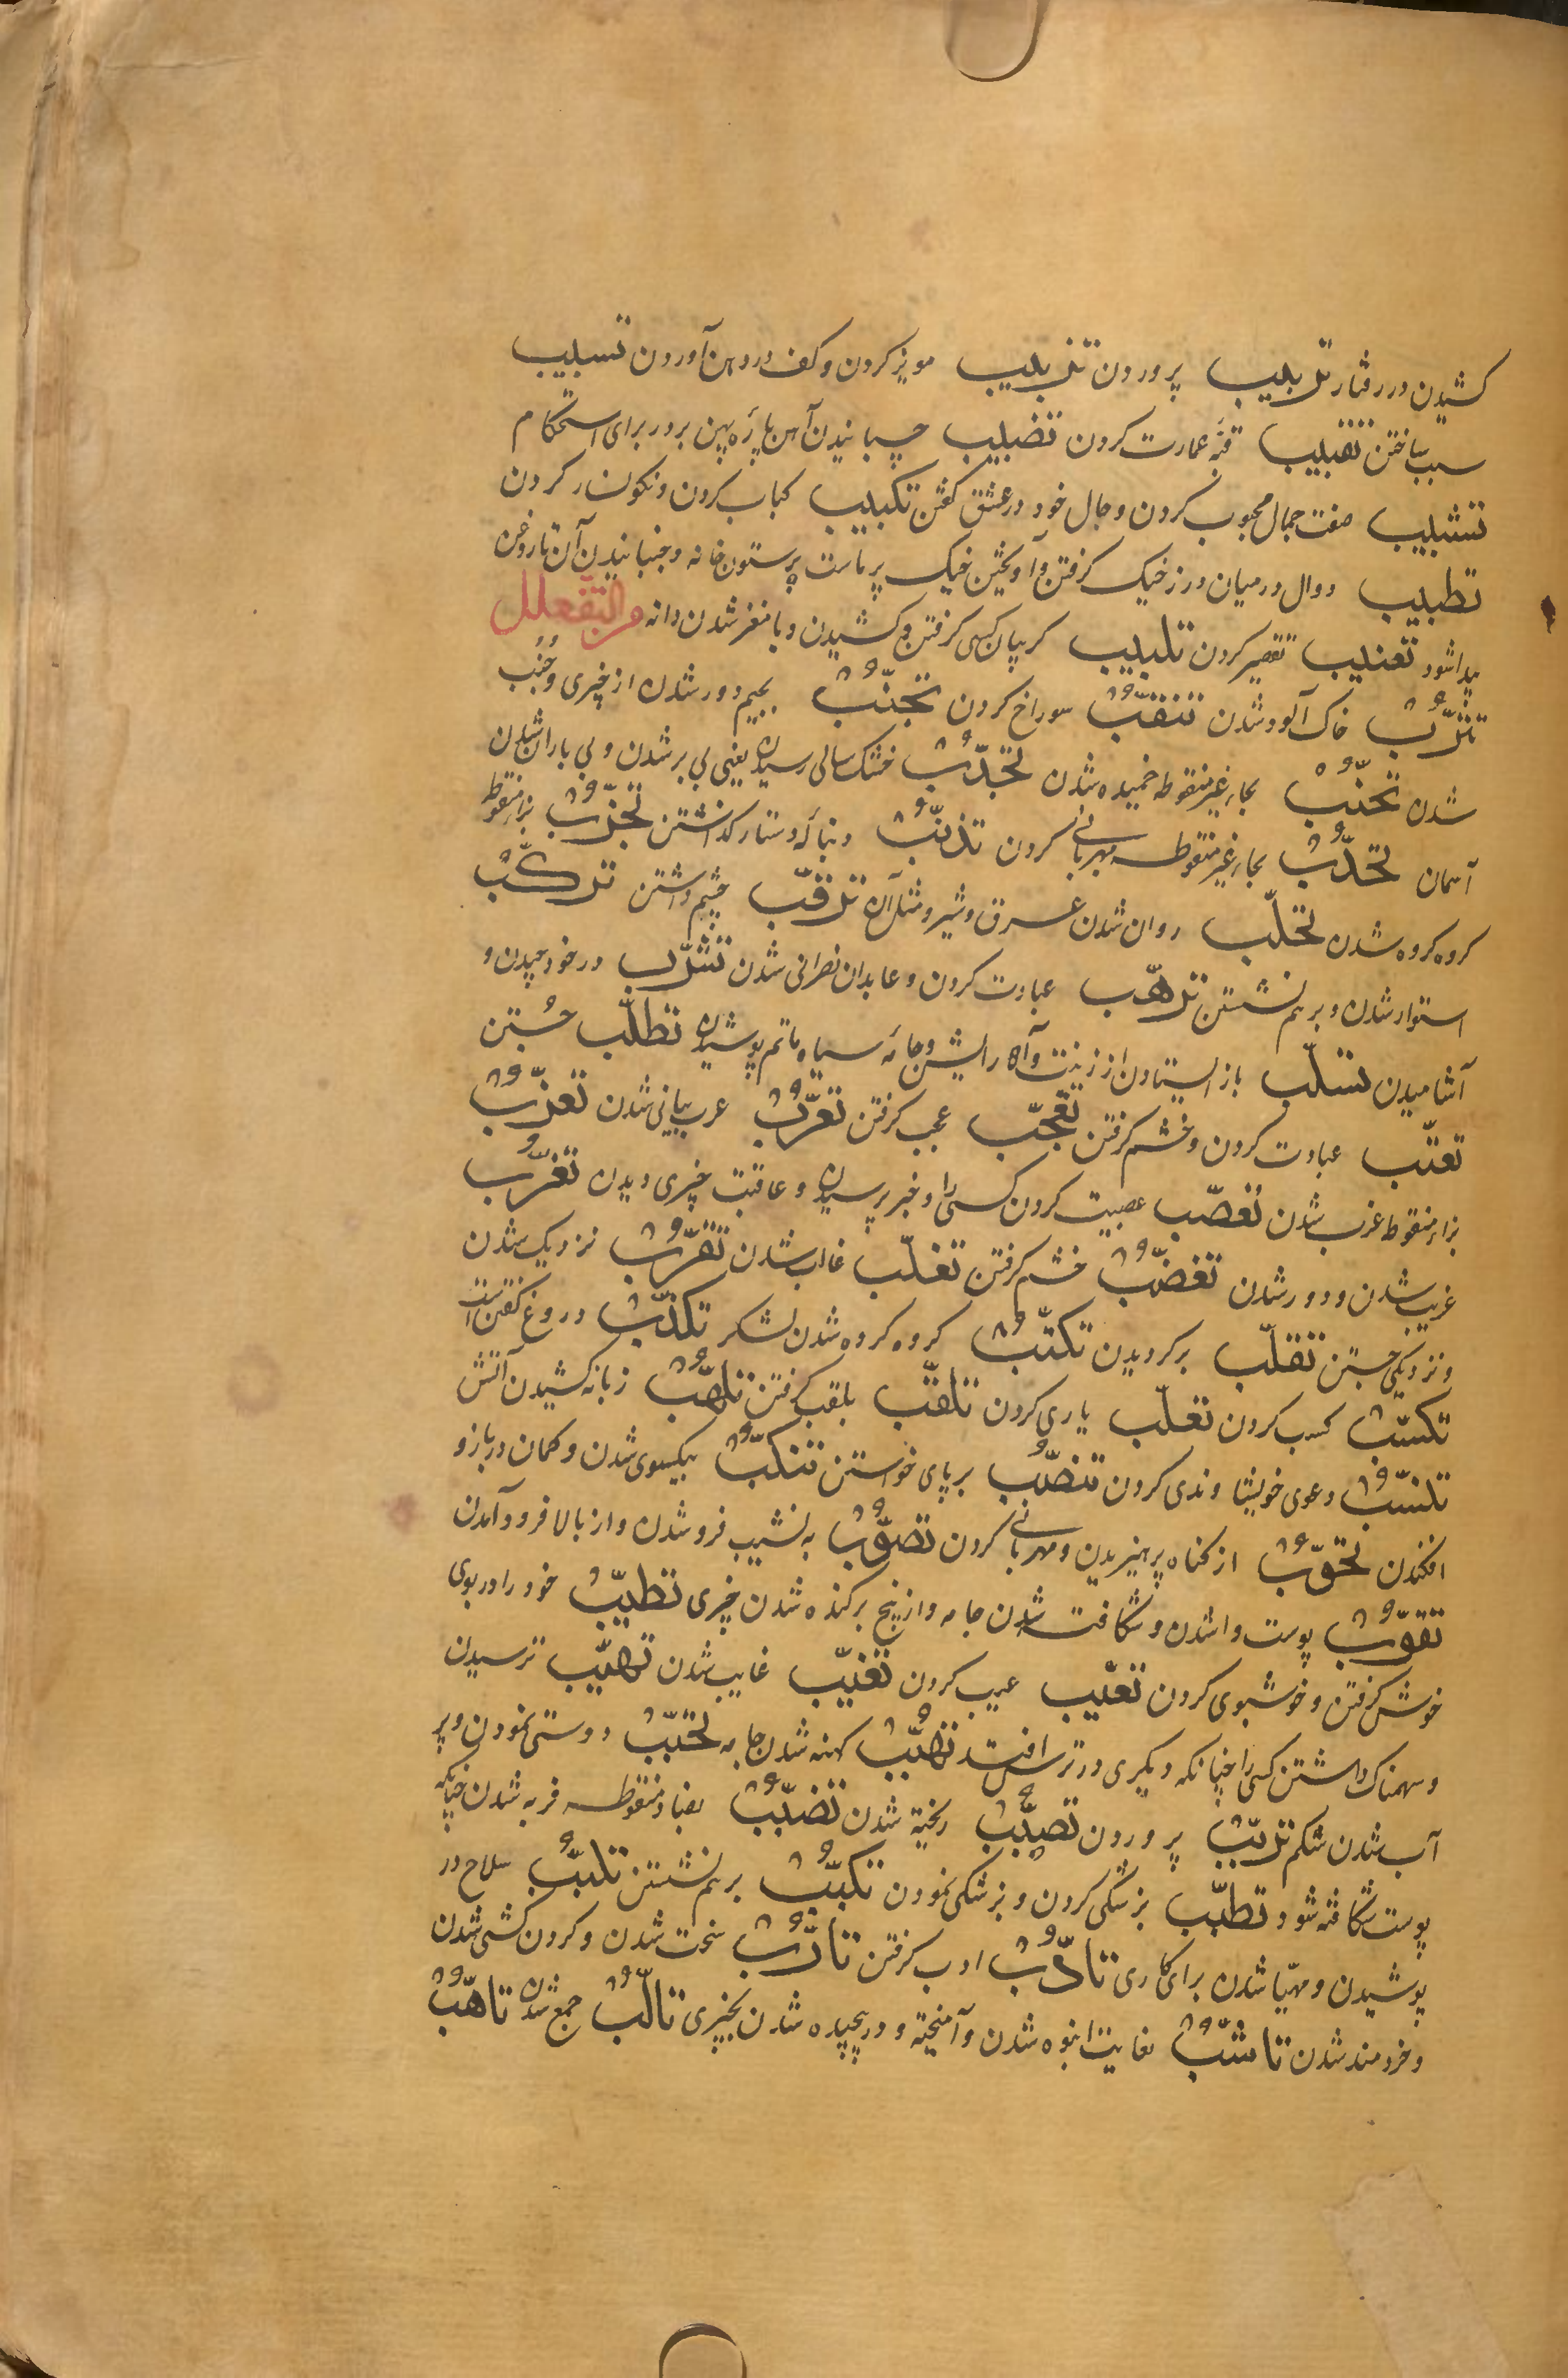 کشیدن در رفتار تربیب پروردن تزبیب مویز کردن و کف در دهن آوردن تسبیب
سبب ساختن تقبیب قبّه عمارت کردن تضبیب چسبانیدن آهن پاره پهن بر در برای استحکام
تشبیب صفت جمال محبوب کردن و حال خود در عشق گفتن تکبیب کباب کردن و نگونسار کردن
تطبیب دوال در میان درز خیک گرفتن و آویختن خیک پر ماست بر ستون خانه و جنبانیدن آن تا روغن
پیدا شود تعتیب تقصیر کردن تلبیب گریبان کسی گرفتن و کشیدن و با مغز شدن دانه من التفعلل
تترّب خاک آلود شدن تنقّب سوراخ کردن تجنّب بجیم دور شدن از چیزی و جُنُب
شدن تحنّب بحای غیر منقوطه خمیده شدن تجدّب خشک سالی رسیدن یعنی بی بر شدن و بی باران شدن
آسمان تحدّب بحای غیر منقوطه مهربانی کردن تذنّب دنبالهٔ دستار گذاشتن تحزّب بزاء منقوطه
گروه گروه شدن تحلّب روان شدن عرق و شیر و مثل آن ترقّب چشم داشتن ترکّب
استوار شدن و بر هم نشستن ترهّب عبادت کردن و عابدان نصرانی شدن تشرّب در خود چیدن و
آشامیدن تسلّب باز ایستادن از زینت و آرایش و جامهٔ سیاه ماتم پوشیدن تطلّب جُستن
تعتّب عبادت کردن و خشم گرفتن تعجّب عجب گرفتن تعرّب عرب بیابانی شدن تعزّب
بزاء منقوط عزب شدن تعصّب عصبیت کردن کسی را و خبر پرسیدن و عاقبت چیزی دیدن تغرّب
غریب شدن و دور شدن تغضّب خشم گرفتن تغلّب غالب شدن تقرّب نزدیک شدن
و نزدیکی جستن تقلّب برگردیدن تکتّب گروه گروه شدن لشکر تکذّب دروغ گفتن
تکسّب کسب کردن تعلّب یاری کردن تلقّب بلقب گرفتن تلهّب زبانه کشیدن آتش
تنسّب دعوی خویشاوندی کردن تنصّب برپای خواستن تنکّب بیکسوی شدن و کمان در بازو
افکندن تحوّب از گناه پرهیزیدن و مهربانی کردن تصوّب به نشیب فرو شدن و از بالا فرود آمدن
تقوّب پوست وا شدن و شکافته شدن جامه و از بیخ برکنده شدن چیزی تطیّب خود را در بوی
خوش گرفتن و خوشبوی کردن تعیّب عیب کردن تغیّب غایب شدن تهیّب ترسیدن
و سهمناک داشتن کسی را چنانکه دیگری در ترس افتد تهبّب کهنه شدن جامه تحبّب دوستی نمودن و پر
آب شدن شکم تربّب پروردن تصبّب ریخته شدن تضبّب بضاد منقوطه فربه شدن چنانکه
پوست شکافته شود تطبّب بزشکی کردن و بزشکی نمودن تکبّب بر هم نشستن تلبّب سلاح در
پوشیدن و مهیّا شدن برای کاری تادّب ادب گرفتن تارّب سخت شدن و گردن کشی شدن
و خردمند شدن تاشّب بغایت انبوه شدن و آمیخته و در پیچیده شدن بچیزی تالّب جمع شدن تاهّب